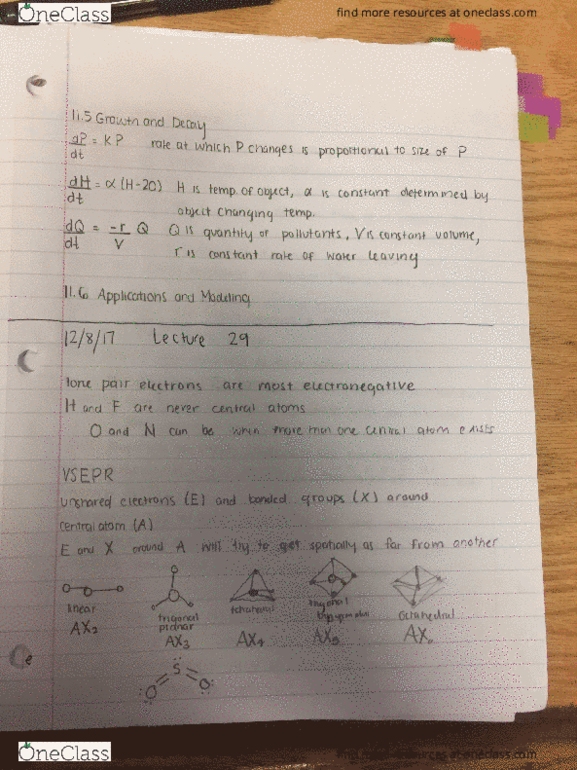 OneClass
find more resources at oneclass.com
11.5 Growth and Decay
dP/dt = KP rate at which P changes is proportional to size of P
dH/dt = α (H-20) H is temp. of object, α is constant determined by
object changing temp.
dQ/dt = -r/V Q Q is quantity of pollutants, V is constant volume,
r is constant rate of water leaving
11.6 Applications and Modeling
12/8/17 Lecture 29
lone pair electrons are most electronegative
H and F are never central atoms
O and N can be when more than one central atom exists
VSEPR
unshared electrons (E) and bonded groups (X) around
central atom (A)
E and X around A will try to get spatially as far from another
linear
trigonal planar
tetrahedral
trigonal
octahedral
AX2
AX3
AX4
AX5
AX
S
O O
OneClass
find more resources at oneclass.com